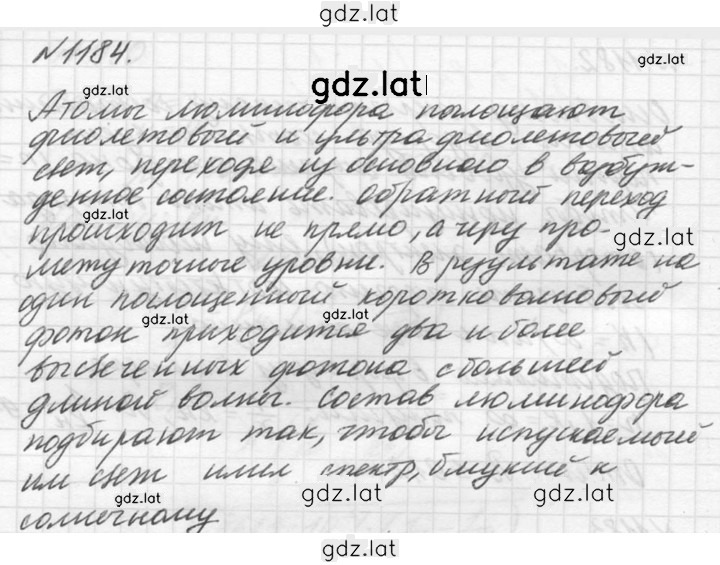 gdz.lat
№1184.
gdz.lat
gdz.lat
gdz.lat
Атомы люминофора поглощают
фиолетовый и ультрафиолетовый
свет, переходя из основного в возбуж-
денное состояние. Обратный переход
gdz.lat
происходит не прямо, а через про-
gdz.lat
межуточные уровни. В результате на
один поглощенный коротковолновый
gdz.lat
gdz.lat
фотон приходится два и более
высвеченных фотона с большей
длиной волны. Состав люминофора
подбирают так, чтобы испускаемый
им свет имел спектр, близкий к
gdz.lat
gdz.lat
gdz.lat
солнечному
gdz.lat